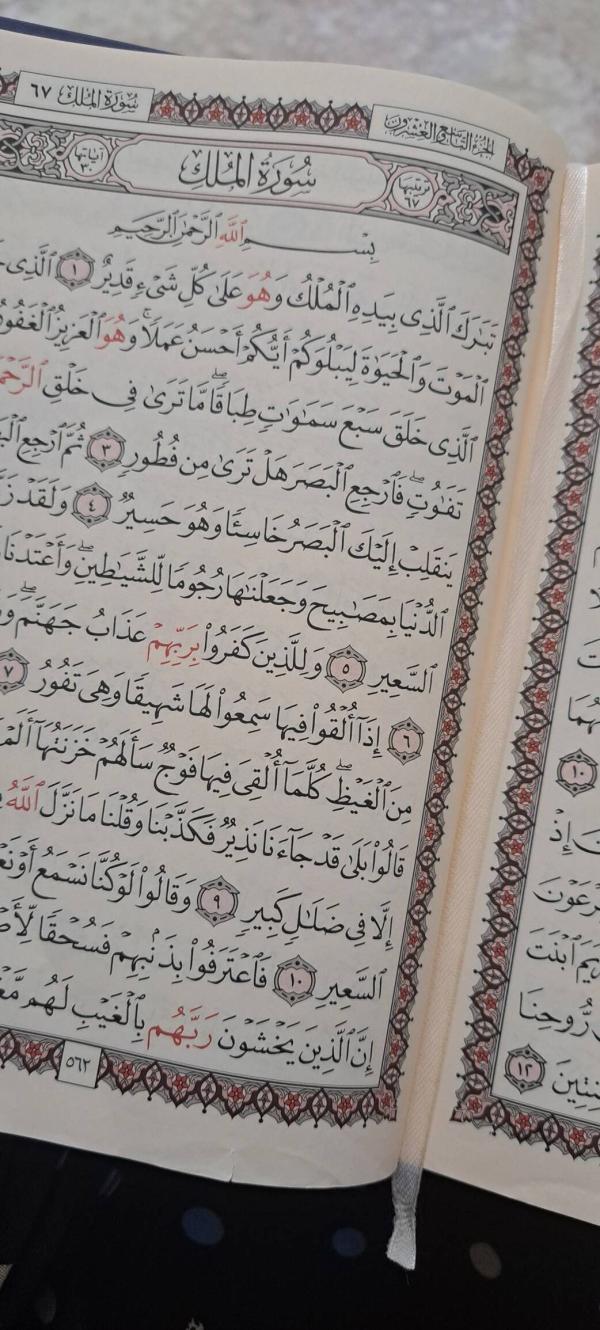 الجزء التاسع والعشرون
سُورَةُ المُلْكِ ٦٧
ترتيبها ٦٧
سُورَةُ المُلْكِ
آياتها ٣٠
بِسْمِ ٱللَّهِ ٱلرَّحْمَٰنِ ٱلرَّحِيمِ
تَبَٰرَكَ ٱلَّذِى بِيَدِهِ ٱلْمُلْكُ وَهُوَ عَلَىٰ كُلِّ شَىْءٍ قَدِيرٌ ١ ٱلَّذِى
ٱلْمَوْتَ وَٱلْحَيَوٰةَ لِيَبْلُوَكُمْ أَيُّكُمْ أَحْسَنُ عَمَلًا ۚ وَهُوَ ٱلْعَزِيزُ ٱلْغَفُورُ
ٱلَّذِى خَلَقَ سَبْعَ سَمَٰوَٰتٍ طِبَاقًا ۖ مَّا تَرَىٰ فِى خَلْقِ
تَفَٰوُتٍ ۖ فَٱرْجِعِ ٱلْبَصَرَ هَلْ تَرَىٰ مِن فُطُورٍ ٣ ثُمَّ ٱرْجِعِ
يَنقَلِبْ إِلَيْكَ ٱلْبَصَرُ خَاسِئًا وَهُوَ حَسِيرٌ ٤ وَلَقَدْ
ٱلدُّنْيَا بِمَصَٰبِيحَ وَجَعَلْنَٰهَا رُجُومًا لِّلشَّيَٰطِينِ ۖ وَأَعْتَدْنَا
ٱلسَّعِيرِ ٥ وَلِلَّذِينَ كَفَرُوا۟ بِرَبِّهِمْ عَذَابُ جَهَنَّمَ ۖ
٦ إِذَآ أُلْقُوا۟ فِيهَا سَمِعُوا۟ لَهَا شَهِيقًا وَهِىَ تَفُورُ ٧
مِنَ ٱلْغَيْظِ ۖ كُلَّمَآ أُلْقِىَ فِيهَا فَوْجٌ سَأَلَهُمْ خَزَنَتُهَآ أَلَمْ
قَالُوا۟ بَلَىٰ قَدْ جَآءَنَا نَذِيرٌ فَكَذَّبْنَا وَقُلْنَا مَا نَزَّلَ ٱللَّهُ
إِلَّا فِى ضَلَٰلٍ كَبِيرٍ ٩ وَقَالُوا۟ لَوْ كُنَّا نَسْمَعُ أَوْ
ٱلسَّعِيرِ ١٠ فَٱعْتَرَفُوا۟ بِذَنۢبِهِمْ فَسُحْقًا
إِنَّ ٱلَّذِينَ يَخْشَوْنَ رَبَّهُم بِٱلْغَيْبِ لَهُم
٥٦٢
١٠
إِذْ
ٱبْنَتَ
رُّوحِنَا
١٢